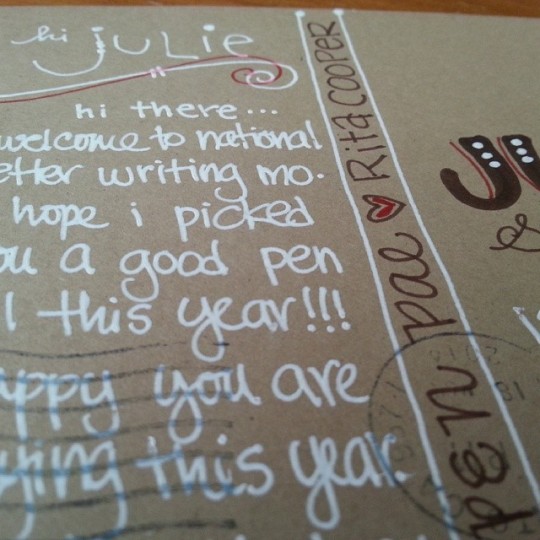 hi JULIE
hi there...
welcome to national
etter writing mo.
hope i picked
ou a good pen
l this year!!!
appy you are
ying this year.
pen pae ♥ Rita COOPER